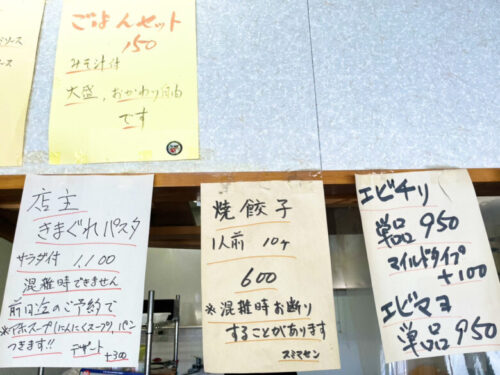 ソース
ース
ごはんセット
150
みそ汁付
大盛、おかわり自由
です
店主
きまぐれパスタ
サラダ付 1,100
混雑時できません
前日迄のご予約で
※アホスープ(にんにくスープ),パン
つきます!! デザート
+300
焼餃子
1人前 10ヶ
600
※混雑時お断り
することがあります
スミマセン
エビチリ
単品950
マイルドタイプ
+100
エビマヨ
単品950